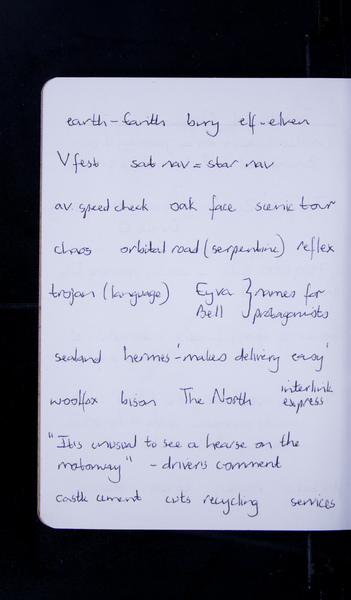 earth-fanth bury elf-elven
V fest sat nav = star nav
av. speed check oak face scenic tour
chaos orbital road (serpentine) reflex
trojan (language) Eyva } names for
Bell protagonists
sealand hermes 'makes delivery easy'
woolfox bison The North interlink express
"It is unusual to see a hearse on the
motorway" - drivers comment
castle cement cuts recycling services